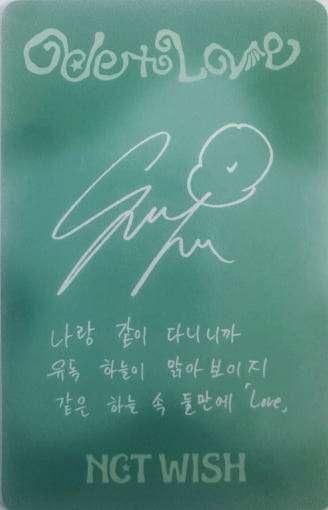 Ode to Love
나랑 같이 다니니까
유독 하늘이 맑아보이지
같은 하늘 속 둘만에 「Love」
NCT WISH